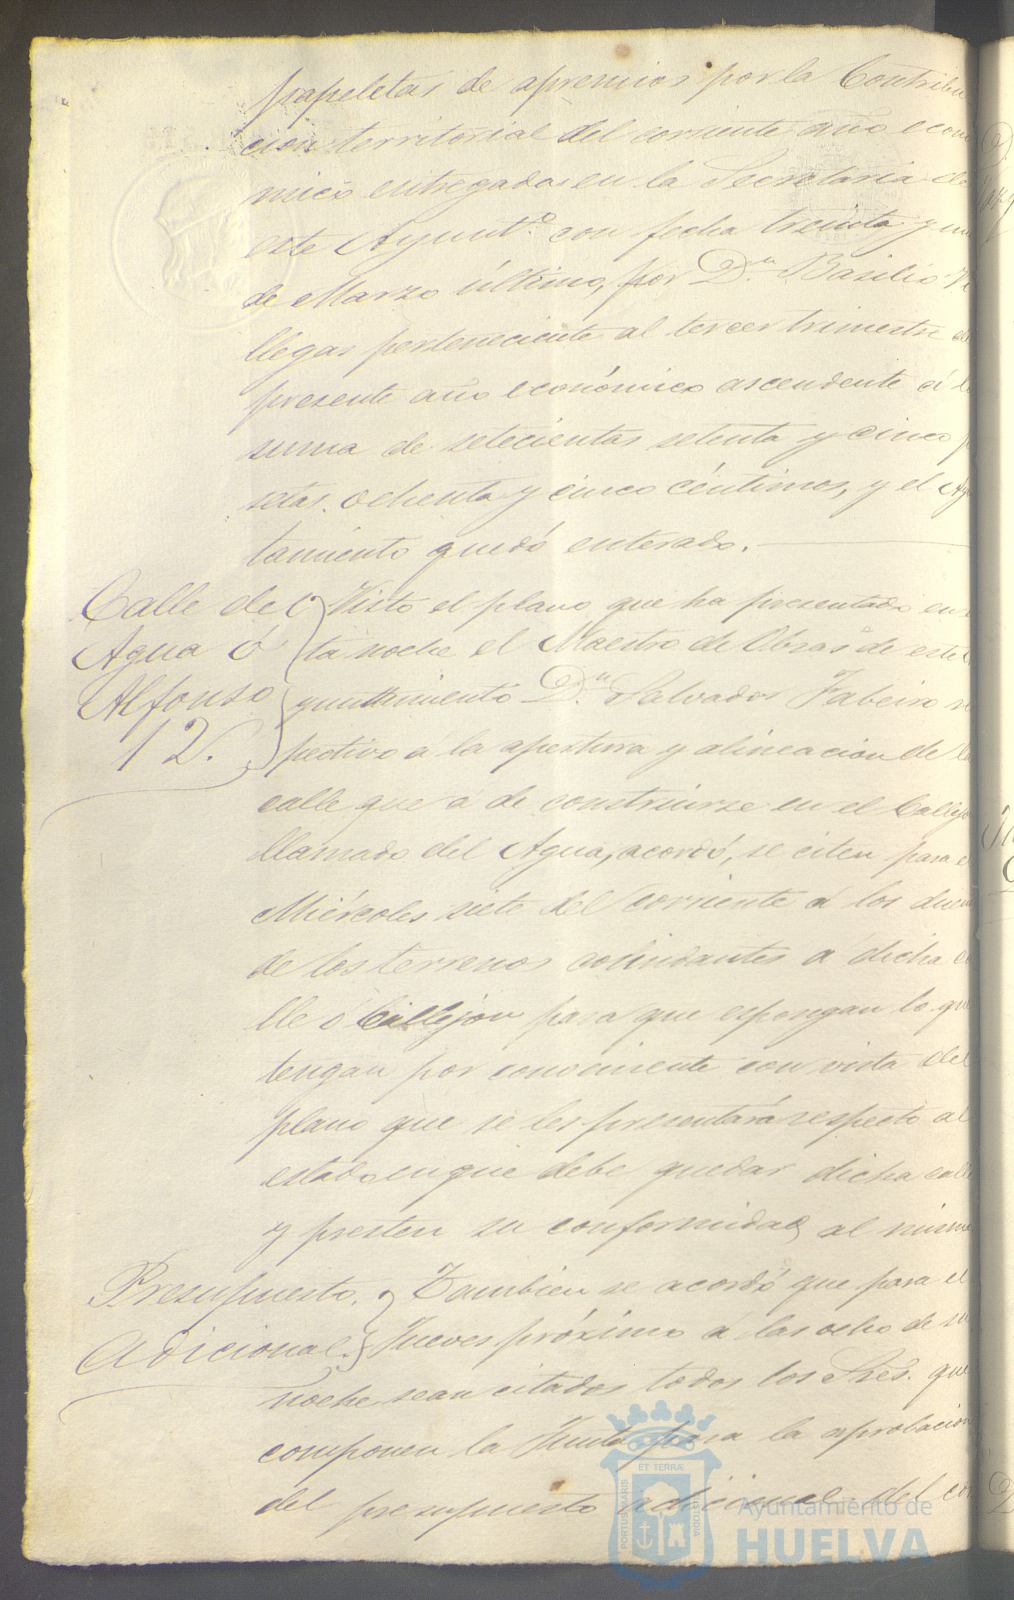 papeletas de apremios por la Contribu
cion territorial del corriente año econo
mico entregadas en la Secretaria de
este Ayunt.º con fecha treinta y un
de Marzo último, por D.n Basilio Vi
llegas perteneciente al tercer trimestre de
presente año económico ascendente á la
suma de setecientas setenta y cinco p
setas ochenta y cinco céntimos, y el Ayu
tamiento quedó enterado.
Calle del
Agua ó
Alfonso
12.
Visto el plano que ha presentado en e
ta noche el Maestro de Obras de este
yuntamiento D.n Salvador Fabeiro re
pectivo á la apertura y alineacion de la
calle que á de construirse en el Callejo
llamado del Agua, acordó, se citen para e
Miércoles siete del corriente á los dueñ
de los terrenos colindantes á dicha ca
lle ó Callejon para que espongan lo que
tengan por conveniente con vista del
plano que se les presentará respecto al
estado en que debe quedar dicha calle
y presten su conformidad al mismo
Presupuesto
Adicional.
Tambien se acordó que para el
Jueves próximo á las ocho de su
noche sean citados todos los Sres. que
componen la Junta para la aprobacion
del presupuesto adicional del co
PORTUS MARIS ET TERRÆ CUSTODIA
Ayuntamiento de
HUELVA